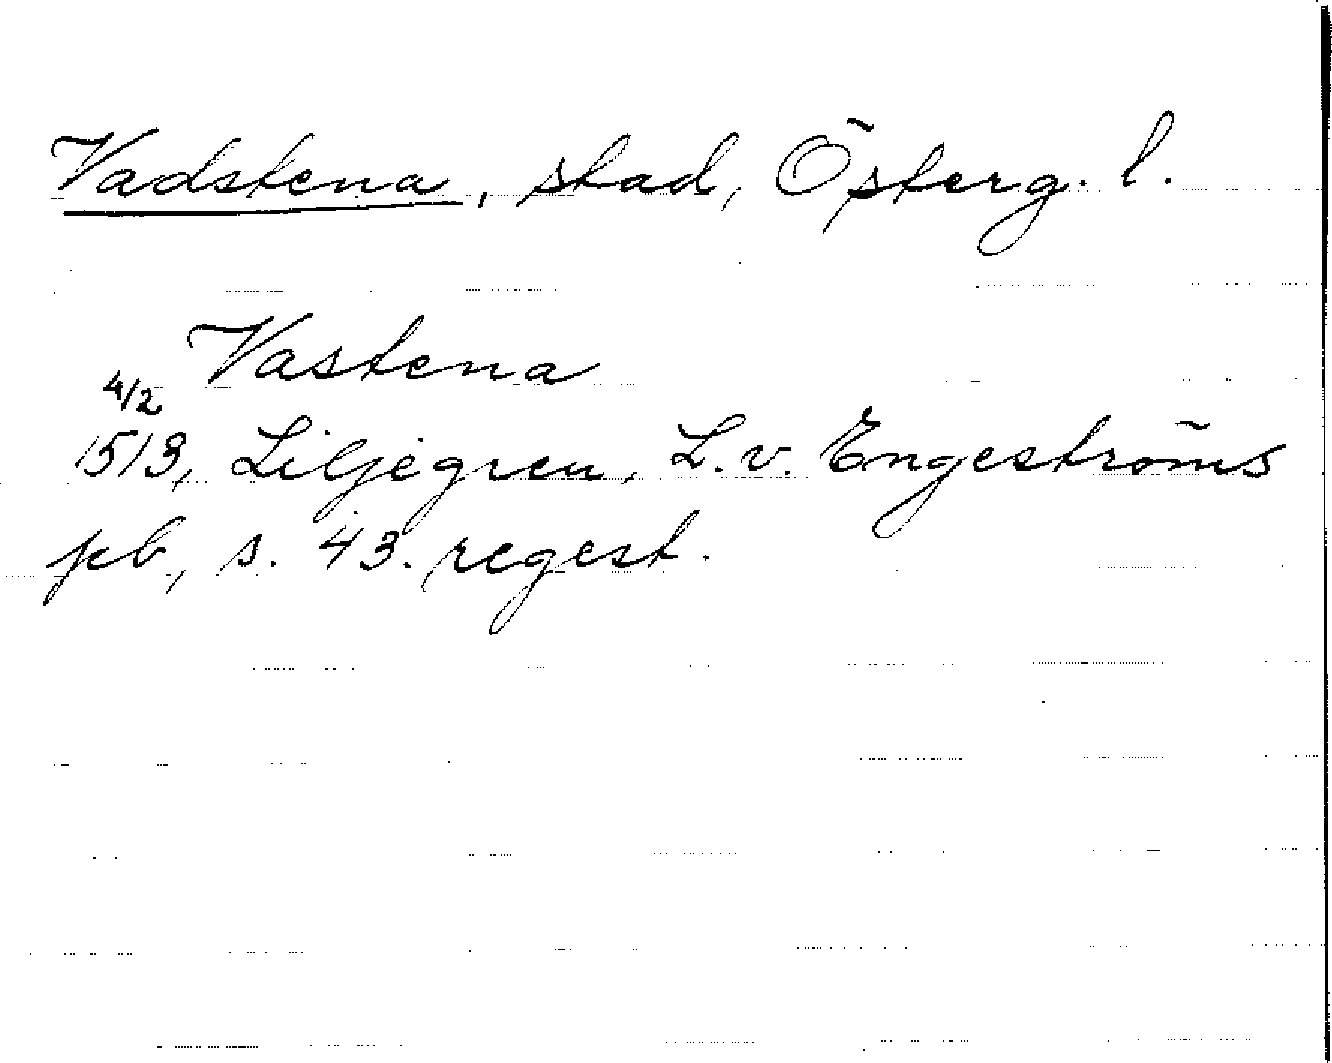 Vadstena, stad, Österg. l.
Vastena
4/2
1513, Liljegren, L. v. Engeströms
pb, s. 43. regest.